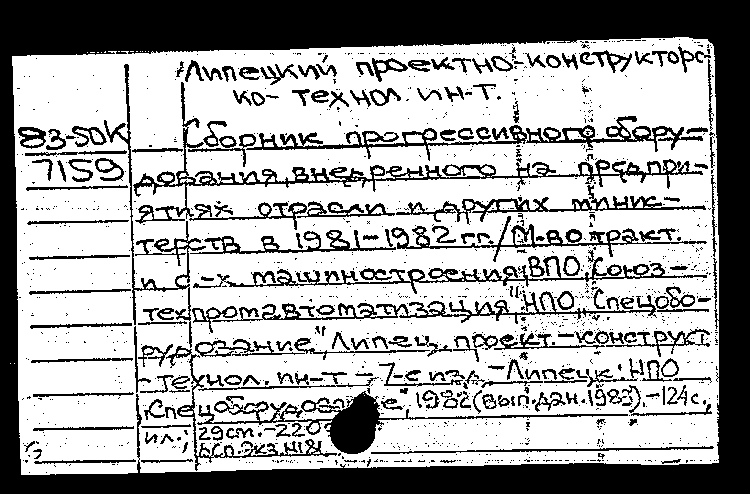 Липецкий проектно-конструкторс-
ко-технол. ин-т.
83-50К
Сборник прогрессивного обору-
7159
дования, внедренного на предпри-
ятиях отрасли и других минис-
терств в 1981-1982 гг./М-во тракт.
и с.-х. машиностроения, ВПО „Союз-
техпромавтоматизация", НПО „Спецобо-
рудование", Липец. проект.-конструкт.
-технол. ин-т - 7-е изд. - Липецк: НПО
„Спецоборудование", 1982 (вып. дан. 1983). - 124 с.,
ил.; 29 см. - 220
Б/Сп. Экз. №181